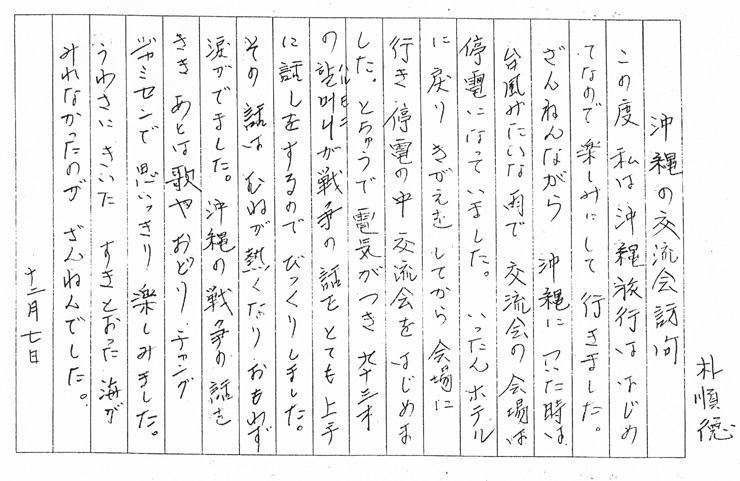 朴順德
沖縄の交流会訪問
この度 私は沖縄旅行は はじめ
てなので 楽しみにして 行きました。
ざんねんながら 沖縄に ついた時は
台風みたいな雨で 交流会の 会場は
停電になって いました。 いったん ホテル
に 戻り きがえを してから 会場に
行き 停電の中 交流会を はじめま
した。とちゅうで 電気がつき 九十三才
ハルモニ
の 할머니が戦争の話を とても上手
に 話しをするので びっくりしました。
その 話は むねが 熱くなり おもわず
涙がでました。沖縄の戦争の話を
きき あとは 歌や おどり チャング
ジャミセンで 思いっきり 楽しみました。
うわさに きいた すきとおった 海が
みれなかったのが ざんねんでした。
十二月七日